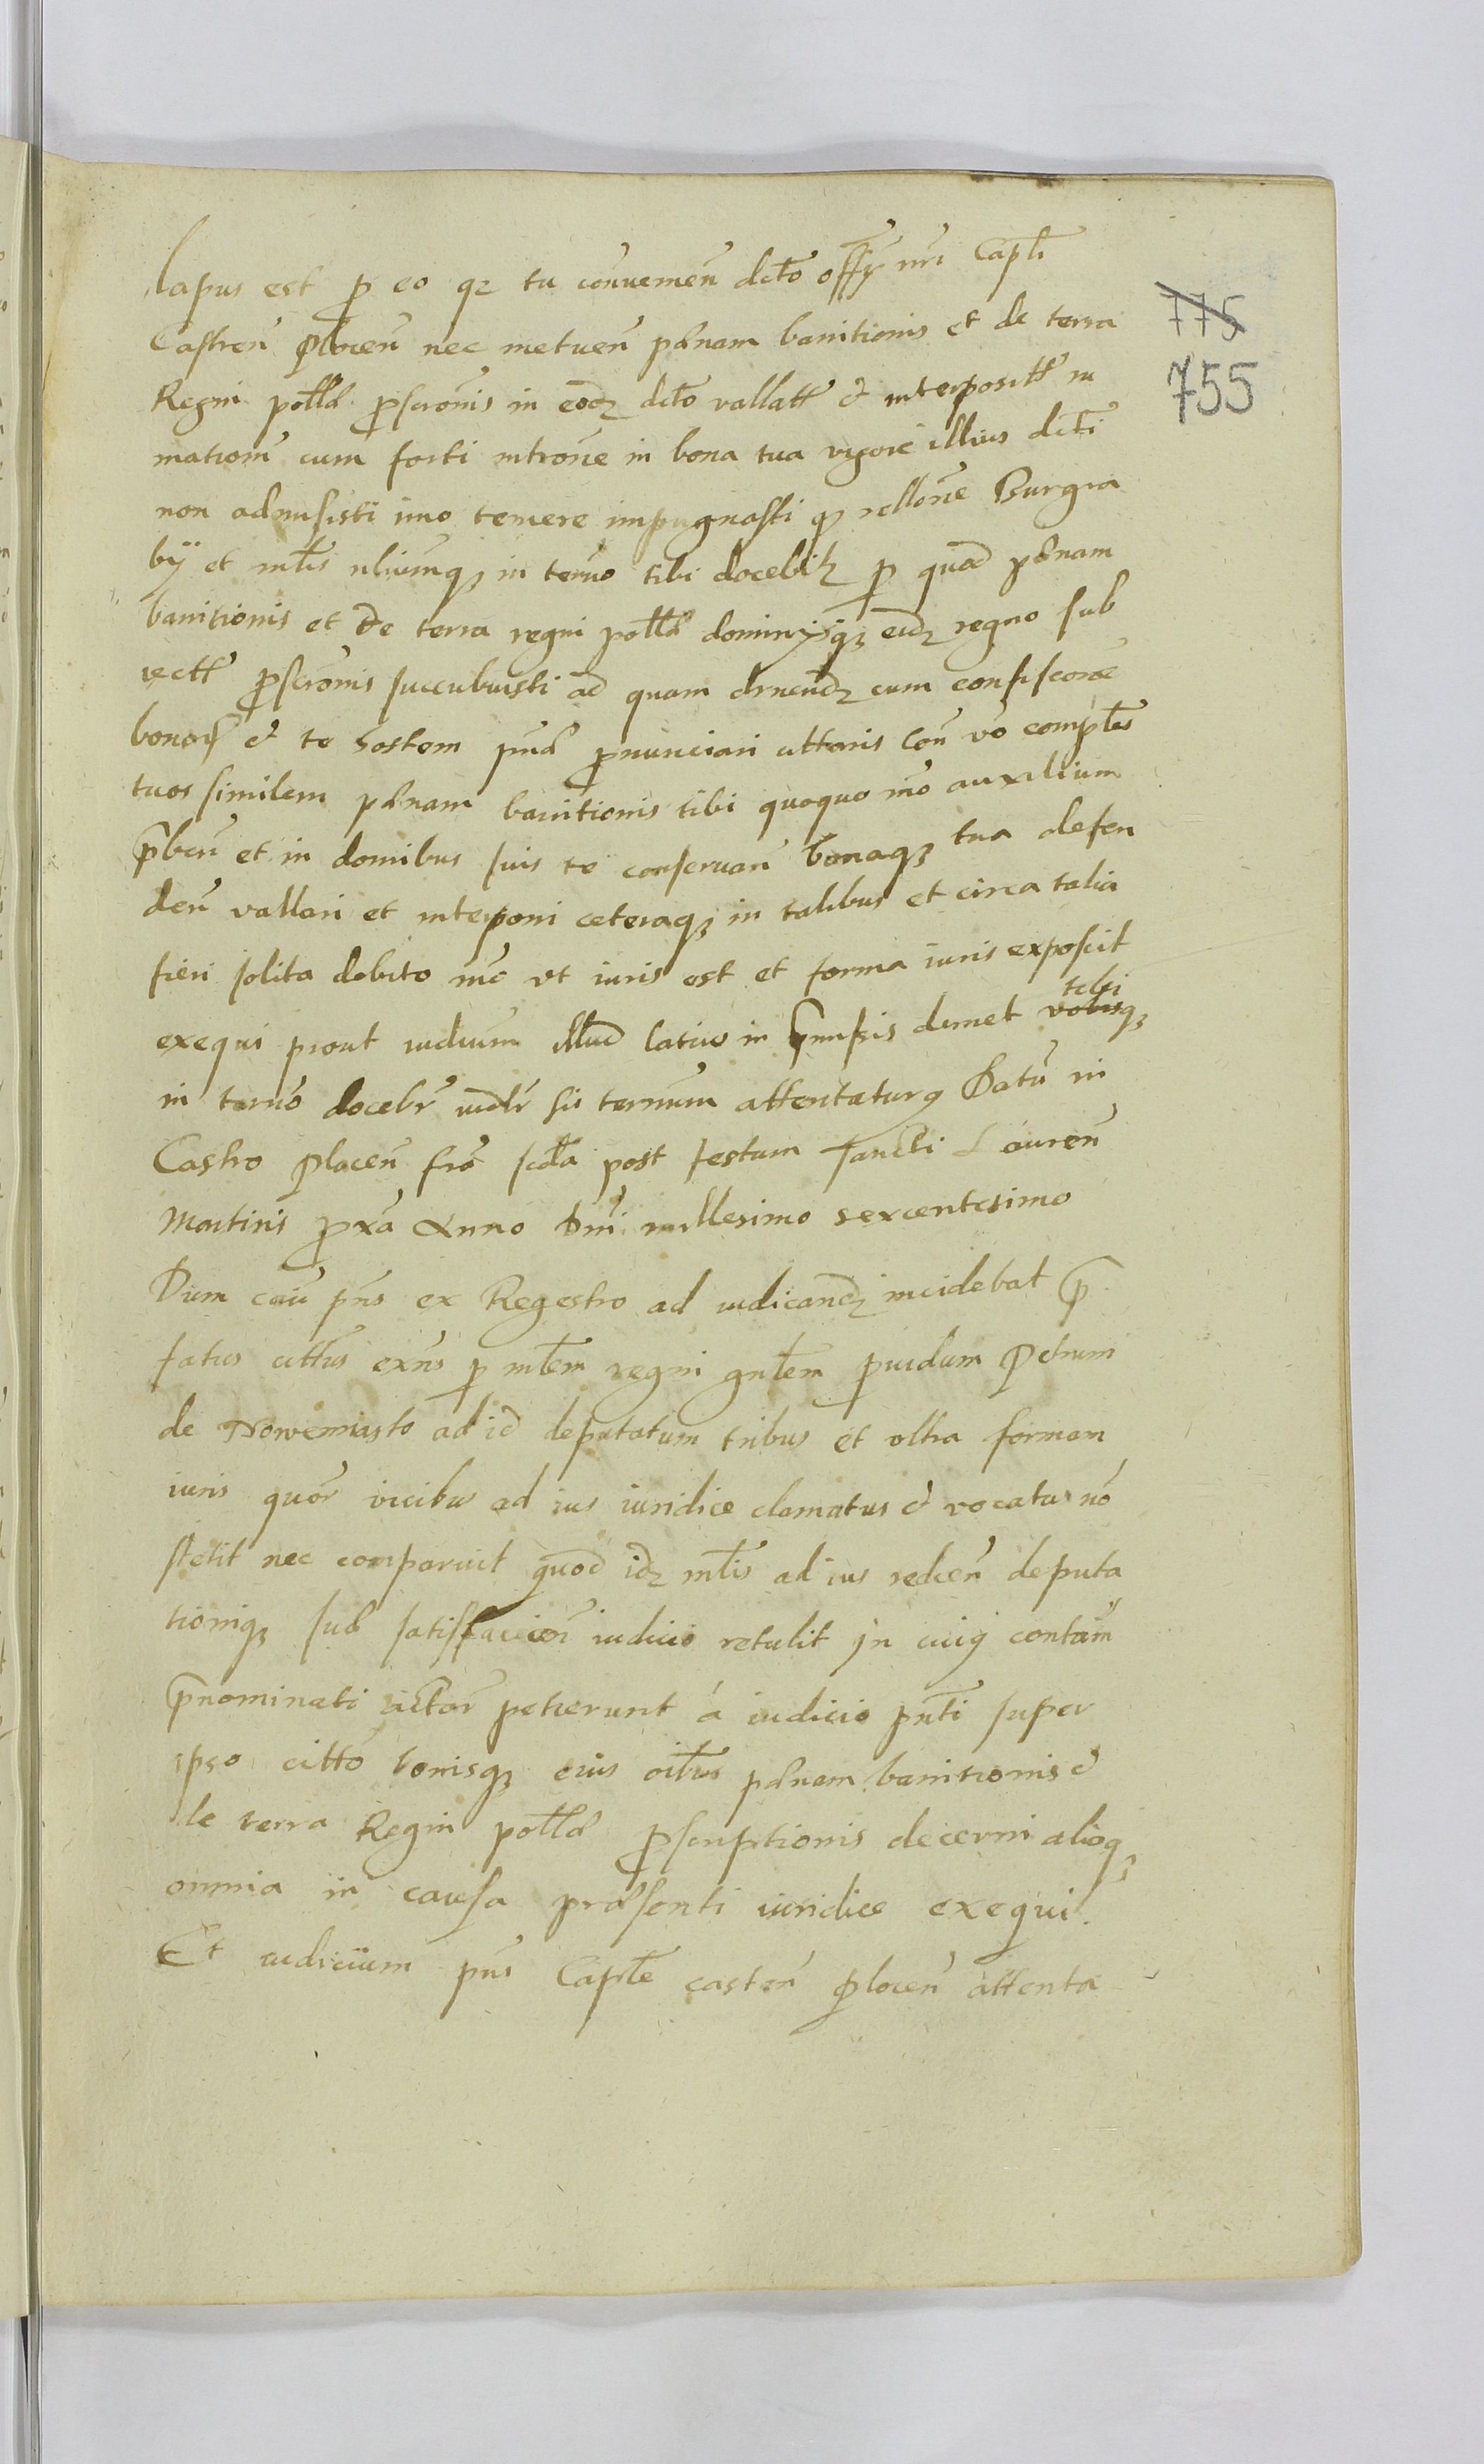 lapus est p eo qz tu convemen dcto offy nri Capli
Castren Plocen nec metuen pænam banitionis et de terra
775
Regni pollæ pscronis in eodz dcto vallatt et interpositt in
755
mationi cum forti introne in bona tua vigore illius dcti
non admisisti imo temere impugnasti q rellone Burgra
bij et mlis nliumqz in termo tibi docebitz p quod pænam
banitionis et de terra regni pollæ dominijsqz eidz regno sub
iectt pscronis succubuisti ad quam drnendz cum confiscone
bonorz et te hostem pnæ pnunciari attoris Con vo complces
tuos similem pænam banitionis tibi quoquo mo auxilium
pben et in domibus suis te conservan bonaqz tua defen
den vallari et interponi ceteraqz in talibus et circa talia
fieri solita debito mo vt iuris est et forma iuris exposcit
tibi
exequi prout iudicium illud latius in pmissis demet vobisqz
in termo docebr iudlr sis terminum attentaturq Datu in
Castro plocen fra scda post festum sancti Lauren
Martiris pxa Anno Dni millesimo sexcentesimo
Dum cau pns ex Regestro ad iudicandz incidebat p
fatus cittus exns p mlem regni gnlem pvidum Petrum
de Nowemiasto ad id deputatum tribus et vltra formam
iuris quor vicibus ad ius iuridice clamatus et vocatus no
stetit nec comparuit quod idz mlis ad ius redien deputa
tioniqz suæ satisfaccion iudicio retulit jn cuiq contam
pnominati actor petierunt á iudicio pnti super
ipso citto bonisqz eius oibus pænam banitionis et
de terra Regni pollæ pscriptionis decerni alioq
omnia in causa præsenti iuridice exequi.
Et iudicium pns Caple casten plocen attenta